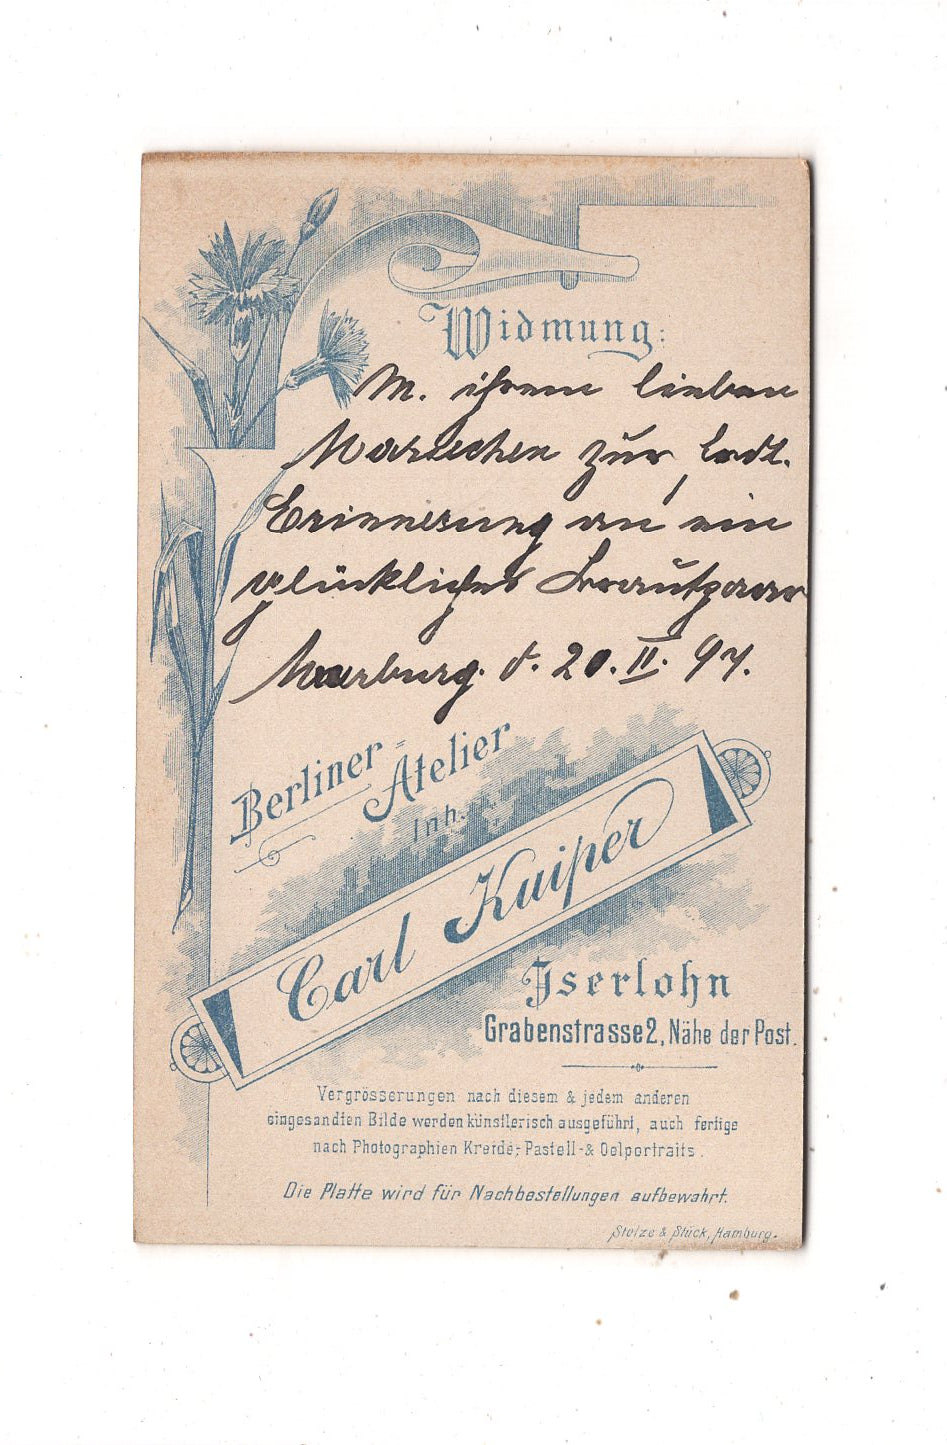 Widmung:
M. ihrem lieben
Mariechen zur frdl.
Erinnerung an ein
glückliches Brautpaar
Marburg. d. 20. II. 97.
Berliner-
Atelier
Inh.
Carl Kuiper
Iserlohn
Grabenstrasse 2, Nähe der Post.
Vergrösserungen nach diesem & jedem anderen
eingesandten Bilde werden künstlerisch ausgeführt, auch fertige
nach Photographien Kreide,- Pastell-& Oelportraits.
Die Platte wird für Nachbestellungen aufbewahrt.
Stolze & Stück, Hamburg.